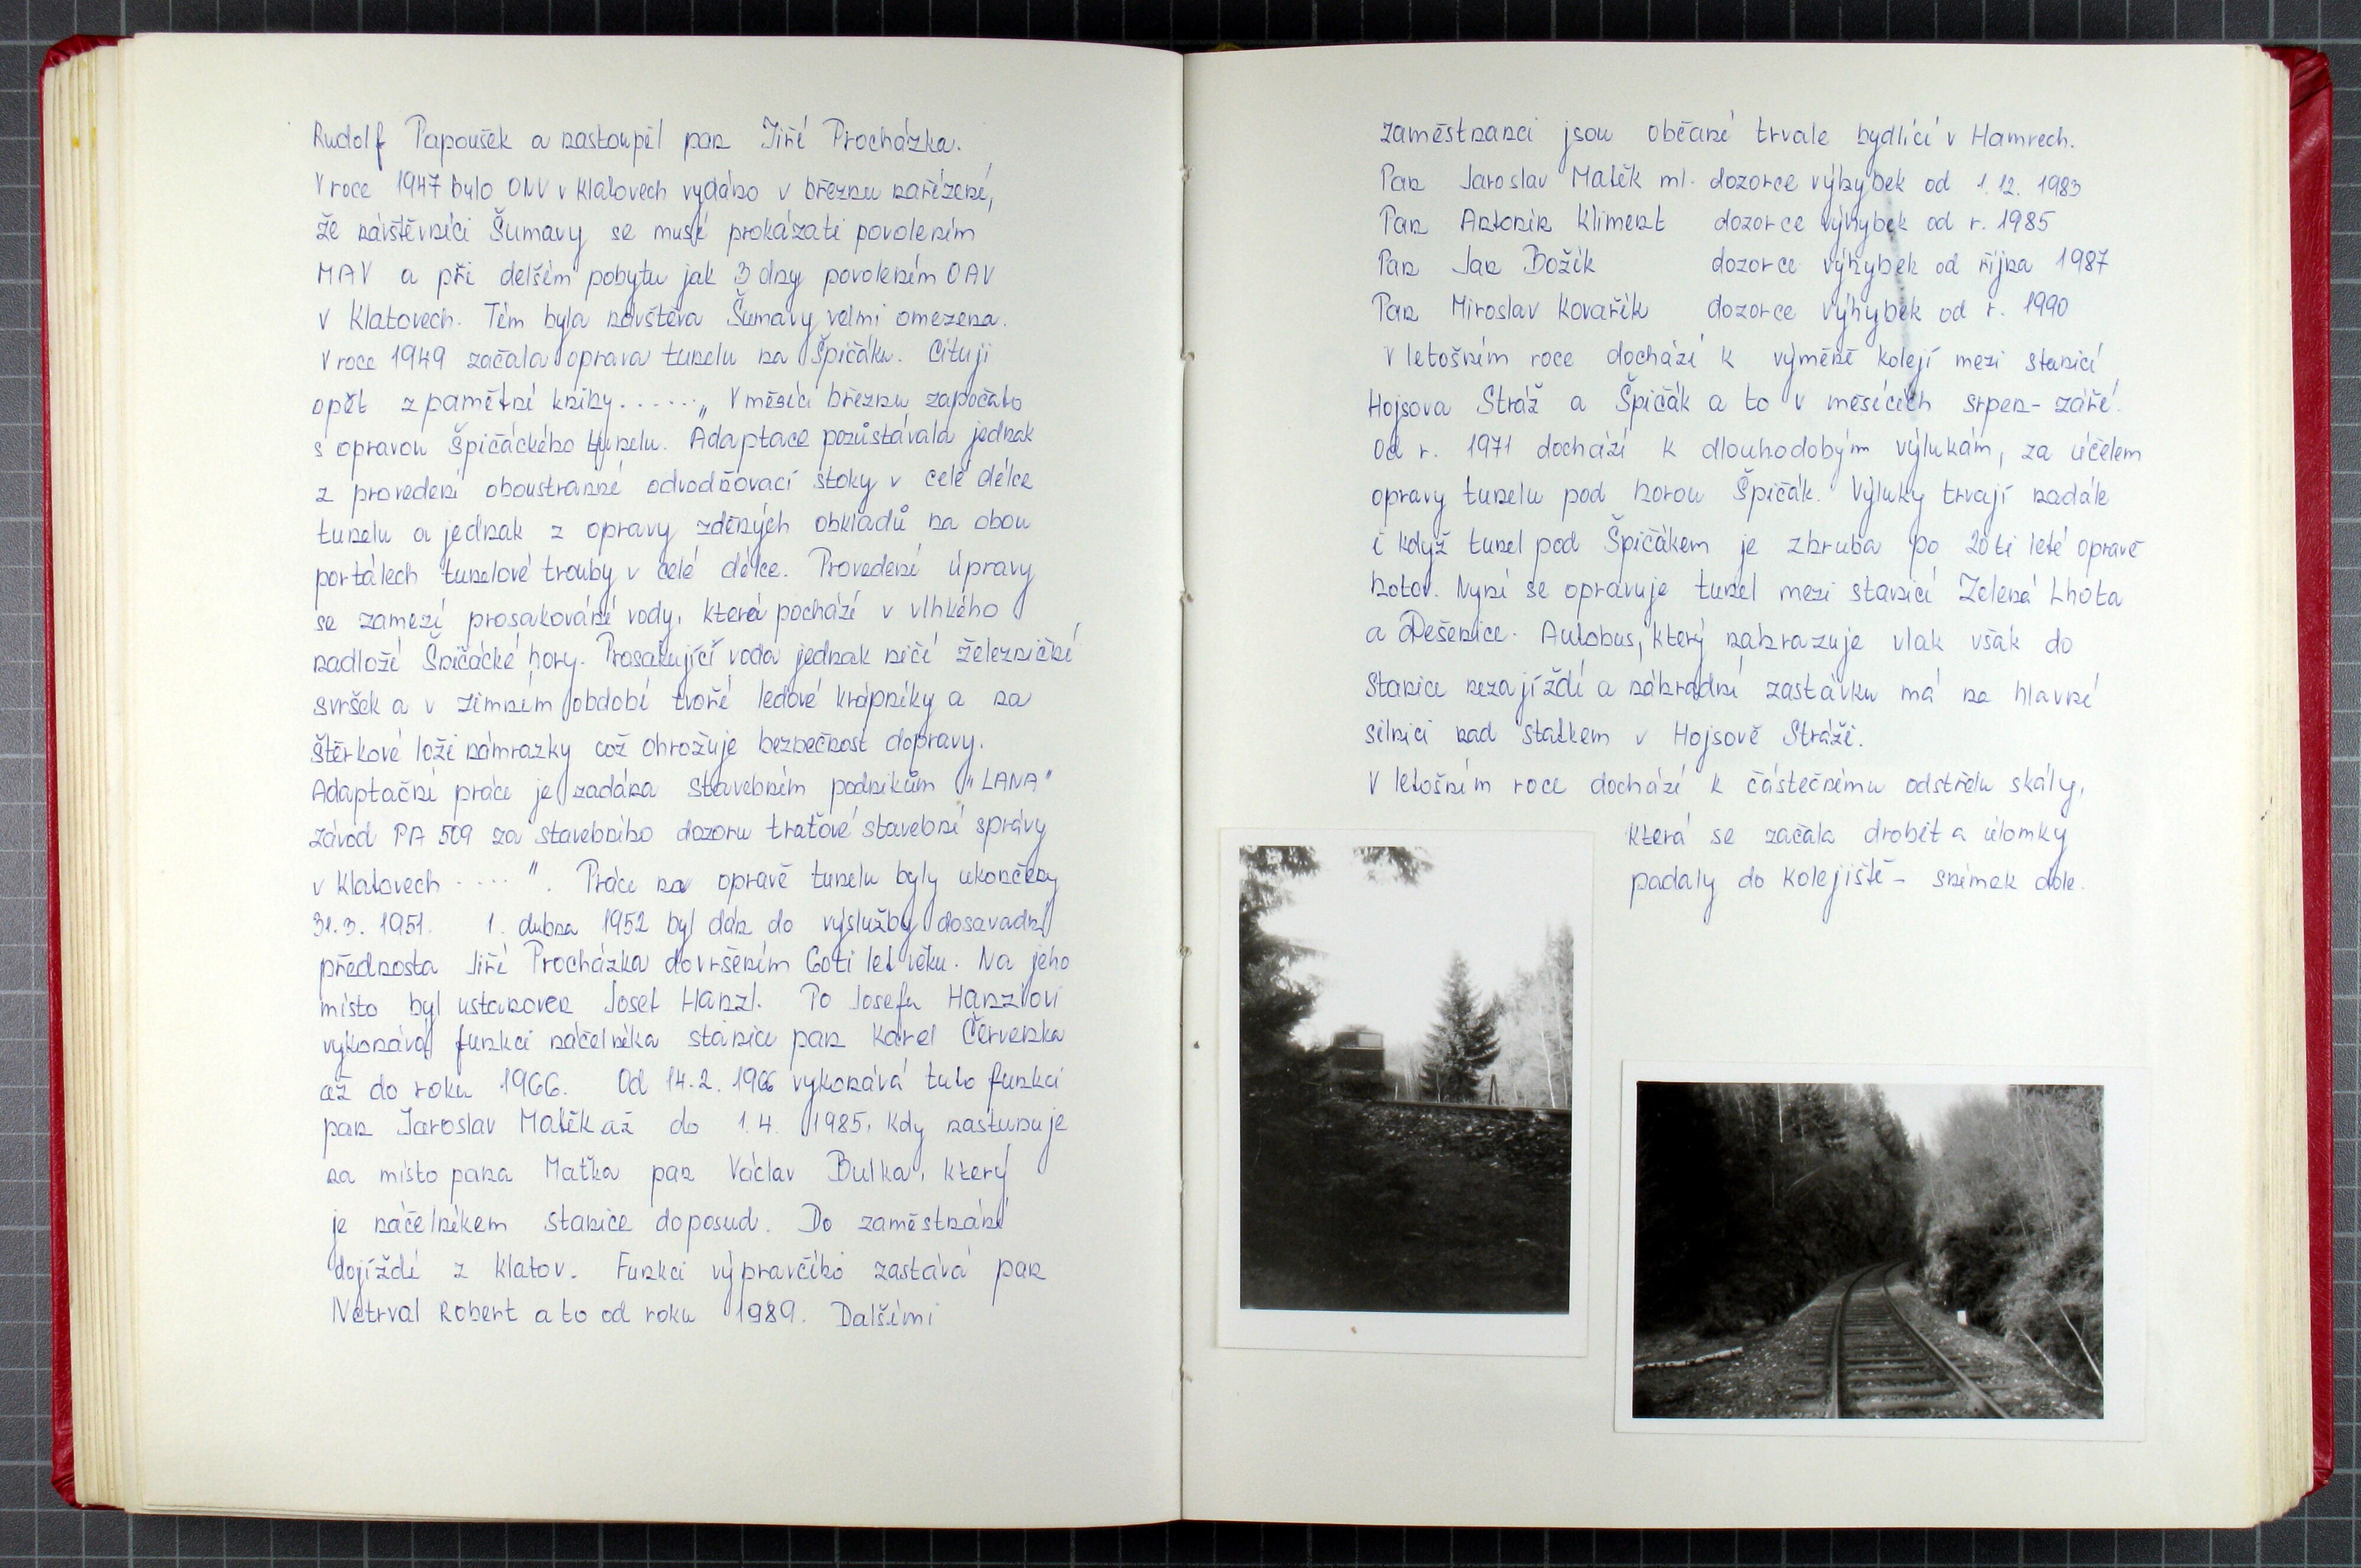 Rudolf Papoušek a nastoupil pan Jiří Procházka.
V roce 1947 bylo ONV v Klatovech vydáno v březnu nařízení,
že návštěvníci Šumavy se musí prokázati povolením
MAV a při delším pobytu jak 3 dny povolením OAV
v Klatovech. Tím byla návštěva Šumavy velmi omezena.
V roce 1949 začala oprava tunelu na Špičáku. Cituji
opět z pamětní knihy......„ V měsíci březnu započato
s opravou Špičáckého tunelu. Adaptace pozůstávala jednak
z provedení oboustranné odvodňovací stoky v celé délce
tunelu a jednak z opravy zděných obkladů na obou
portálech tunelové trouby v celé délce. Provedení úpravy
se zamezí prosakování vody, která pochází v vlhkého
nadloží Špičácké hory. Prosakující voda jednak ničí železniční
svršek a v zimním období tvoří ledové krápníky a na
štěrkové loži námrazky což ohrožuje bezbečnost dopravy.
Adaptační práce je zadána stavebním podnikům "LANA"
závod PA 509 za stavebního dozoru traťové stavební správy
v Klatovech .... ". Práce na opravě tunelu byly ukončeny
31.3. 1951. 1. dubna 1952 byl dán do výslužby dosavadní
přednosta Jiří Procházka dovršením 60ti let věku. Na jeho
místo byl ustanoven Josef Hanzl. Po Josefu Hanzlovi
vykonával funkci náčelníka stanice pan Karel Červenka
až do roku 1966. Od 14.2. 1966 vykonává tuto funkci
pan Jaroslav Matěk až do 1.4. 1985, kdy nastupuje
na místo pana Maťka pan Václav Bulka, který
je náčelníkem stanice doposud. Do zaměstnání
dojíždí z Klatov. Funkci výpravčího zastává pan
Netrval Robert a to od roku 1989. Dalšími
zaměstnanci jsou občané trvale bydlící v Hamrech.
Pan Jaroslav Matěk ml. dozorce výhybek od 1.12. 1983
Pan Antonín Kliment dozorce výhybek od r. 1985
Pan Jan Božík dozorce výhybek od října 1987
Pan Miroslav Kovařík dozorce výhybek od r. 1990
V letošním roce dochází k výměně kolejí mezi stanicí
Hojsova Stráž a Špičák a to v měsících srpen - září.
Od r. 1971 dochází k dlouhodobým výlukám, za účelem
opravy tunelu pod horou Špičák. Výluky trvají nadále
i když tunel pod Špičákem je zhruba po 20 ti leté opravě
hotov. Nyní se opravuje tunel mezi stanicí Zelená Lhota
a Dešenice. Autobus, který nahrazuje vlak však do
stanice nezajíždí a náhradní zastávku má na hlavní
silnici nad statkem v Hojsově Stráži.
V letošním roce dochází k částečnému odstřelu skály,
která se začala drobit a úlomky
padaly do kolejiště - snímek dole.